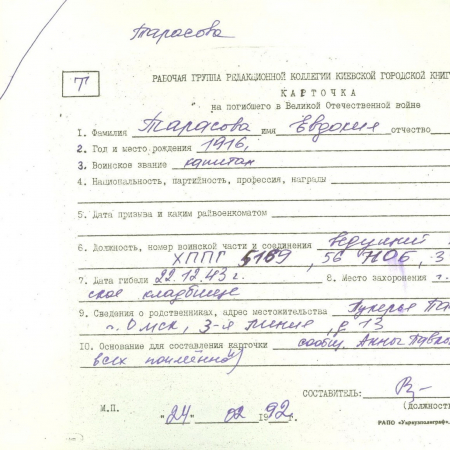 Тарасова
Т
РАБОЧАЯ ГРУППА РЕДАКЦИОННОЙ КОЛЛЕГИИ КИЕВСКОЙ ГОРОДСКОЙ КНИГ
КАРТОЧКА
на погибшего в Великой Отечественной войне
1. Фамилия Тарасова имя Евдокия отчество
2. Год и место рождения 1916,
3. Воинское звание капитан
4. Национальность, партийность, профессия, награды
5. Дата призыва и каким райвоенкоматом
6. Должность, номер воинской части и соединения Ведущий
ХППГ 5169, 56 НОБ, 3
7. Дата гибели 22.12.43 г. 8. Место захоронения г.
ское кладбище
9. Сведения о родственниках, адрес местожительства Лукерья Та
г. Омск, 3-я линия, д. 13
10. Основание для составления карточки сообщ. Анны Павло
всех поимённо")
СОСТАВИТЕЛЬ:
М.П. "24" 02 1992г. (Должность
РАПО «Укрвузполиграф».